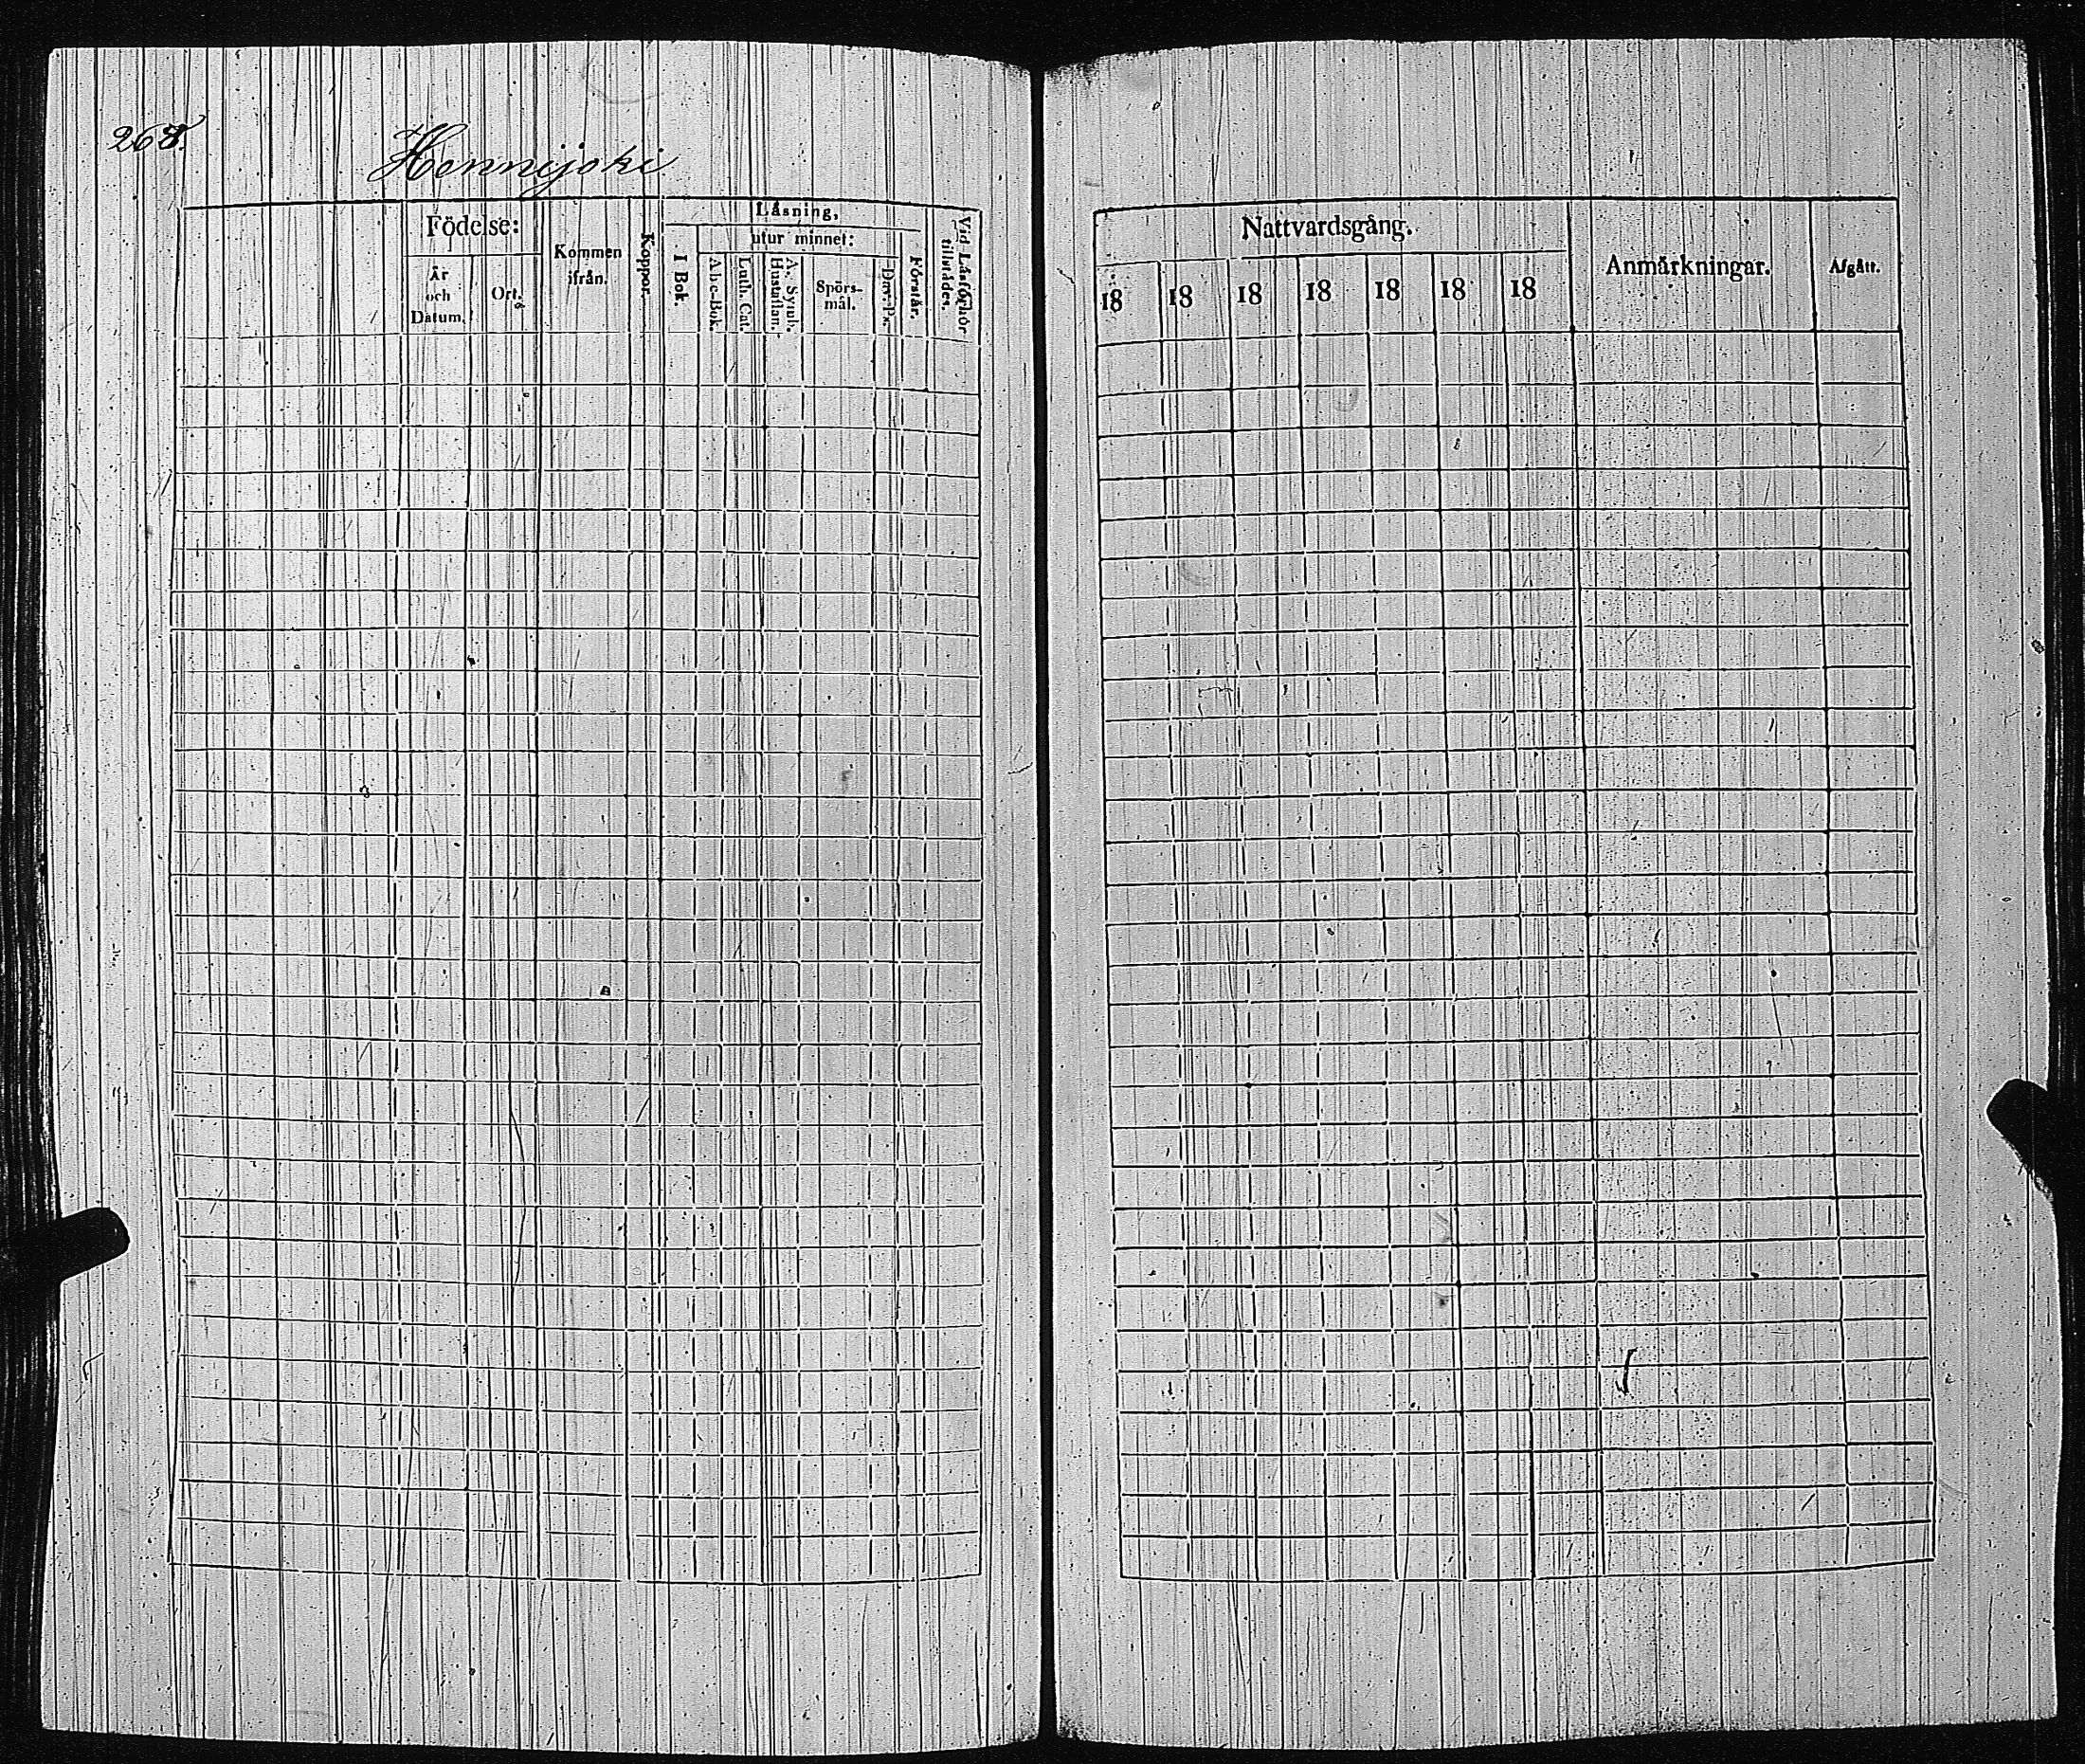 268.
Hennijoki
Födelse:
År
och
Datum.
Ort.
Kommen
ifrån.
Koppor.
Läsning,
utur minnet:
I Bok.
Abc-Bok.
Luth. Cat.
A. Symb.
Hustaflan.
Spörs-
mål.
Dav. Ps.
Förstår.
Vid Läsförhör
tillstädes.
Nattvardsgång.
18 18 18 18 18 18 18
Anmärkningar.
Afgått.